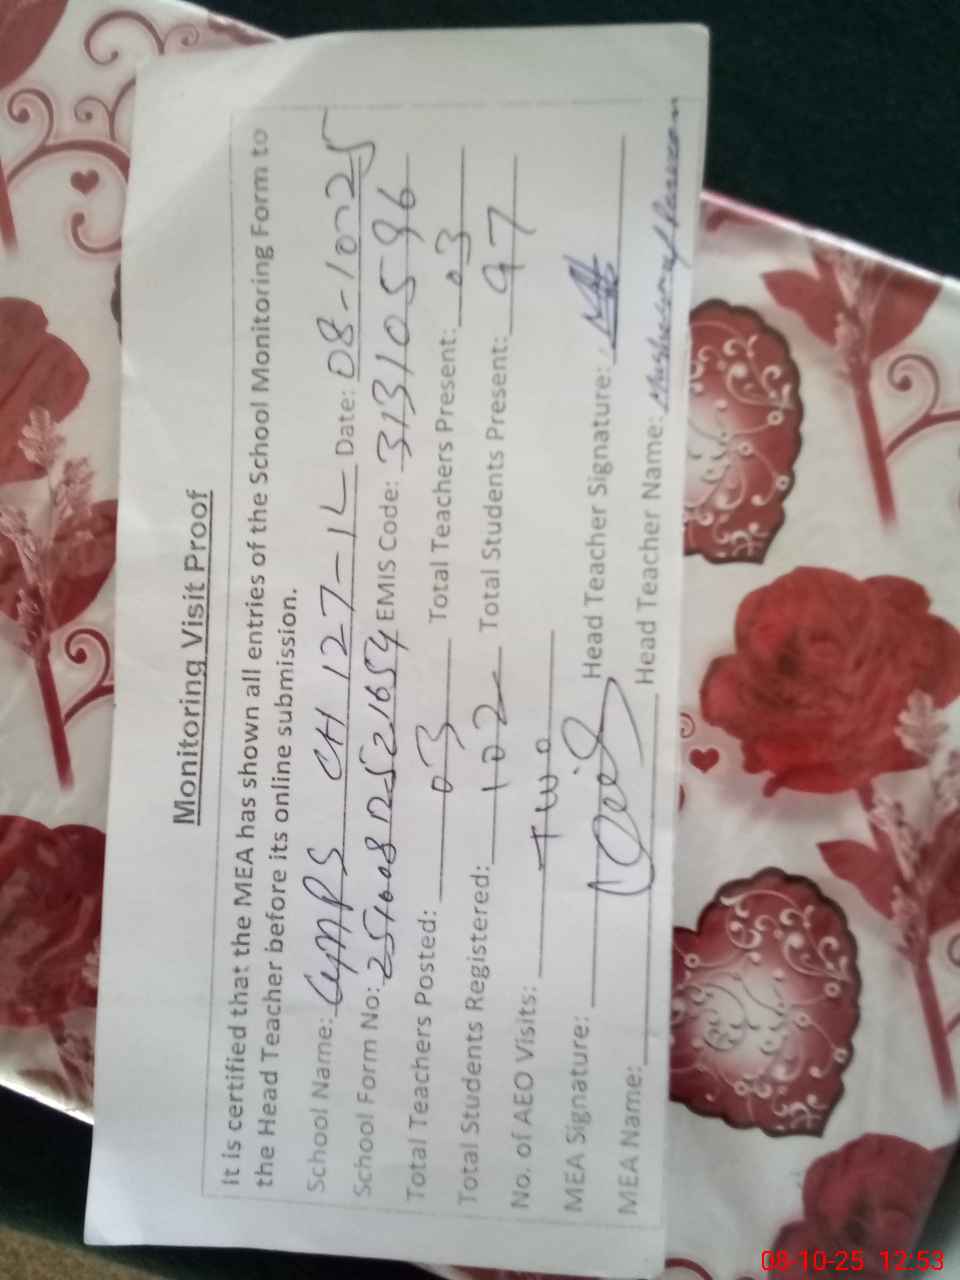 Monitoring Visit Proof
It is certified that the MEA has shown all entries of the School Monitoring Form to
the Head Teacher before its online submission.
School Name: GMPS CH 127-1L Date: 08-10-2025
School Form No: EMIS Code: 31310596
Total Teachers Posted: 03 Total Teachers Present: 03
Total Students Registered: 102 Total Students Present: 97
No. of AEO Visits: Two
MEA Signature: Head Teacher Signature:
MEA Name: Head Teacher Name:
08-10-25 12:53